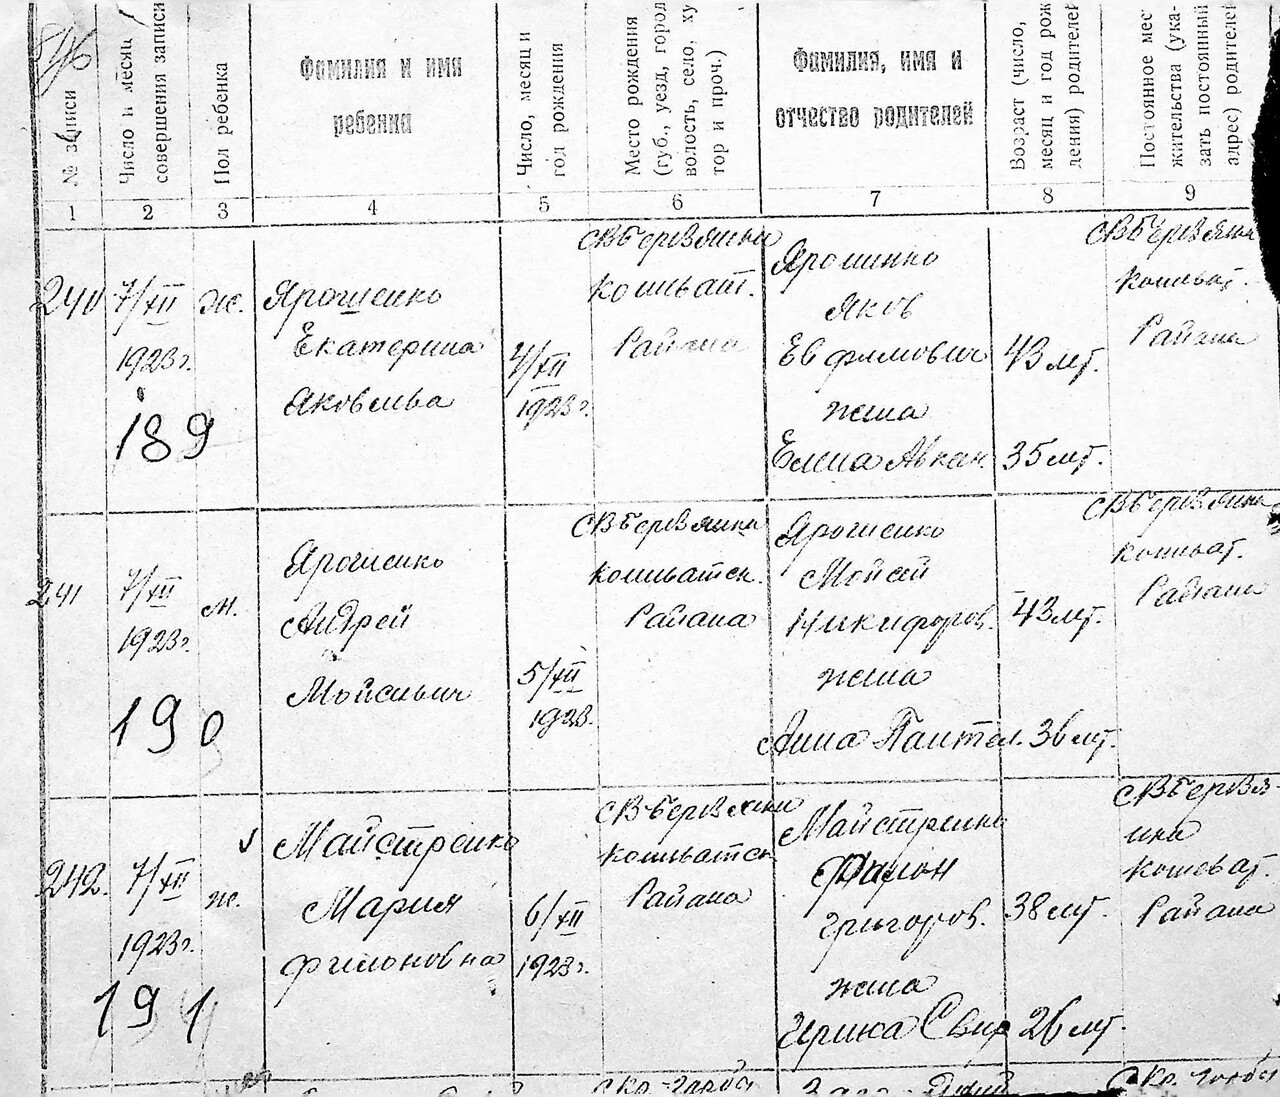 № записи
Число и месяц
совершения записи
Пол ребенка
Фамилия и имя
ребенка
Число, месяц и
год рождения
Место рождения
(губ., уезд, город
волость, село, ху
тор и проч.)
Фамилия, имя и
отчество родителей
Возраст (число,
месяц и год рож
дения) родителей
Постоянное мес
жительства (ука-
зать постоянный
адрес) родителей
1 2 3 4 5 6 7 8 9
240
7/XII
1923 г.
189
ж.
Ярошенко
Екатерина
Яковльва
4/XII
1923 г.
Кошьват.
Района
Ярошинко
Яков
Евфимович
жена
Елена
43 лет.
35 лет.
Кошьват.
Района
241
7/XII
1923 г.
190
м.
Ярошенко
Андрей
Мойсьевич
5/XII
1923.
Кошьватск.
Района
Ярошенко
Мойсей
Никифоров.
жена
Анна Пантел.
43 лет.
36 лет.
Кошьват.
Района
242.
7/XII
1923 г.
191
ж.
Майстренко
Мария
Филоновна
6/XII
1923 г.
Кошьватск
Района
Майстренко
Филон
Григоров.
жена
Ирина Свир
38 лет.
26 лет.
Кошеват.
Района